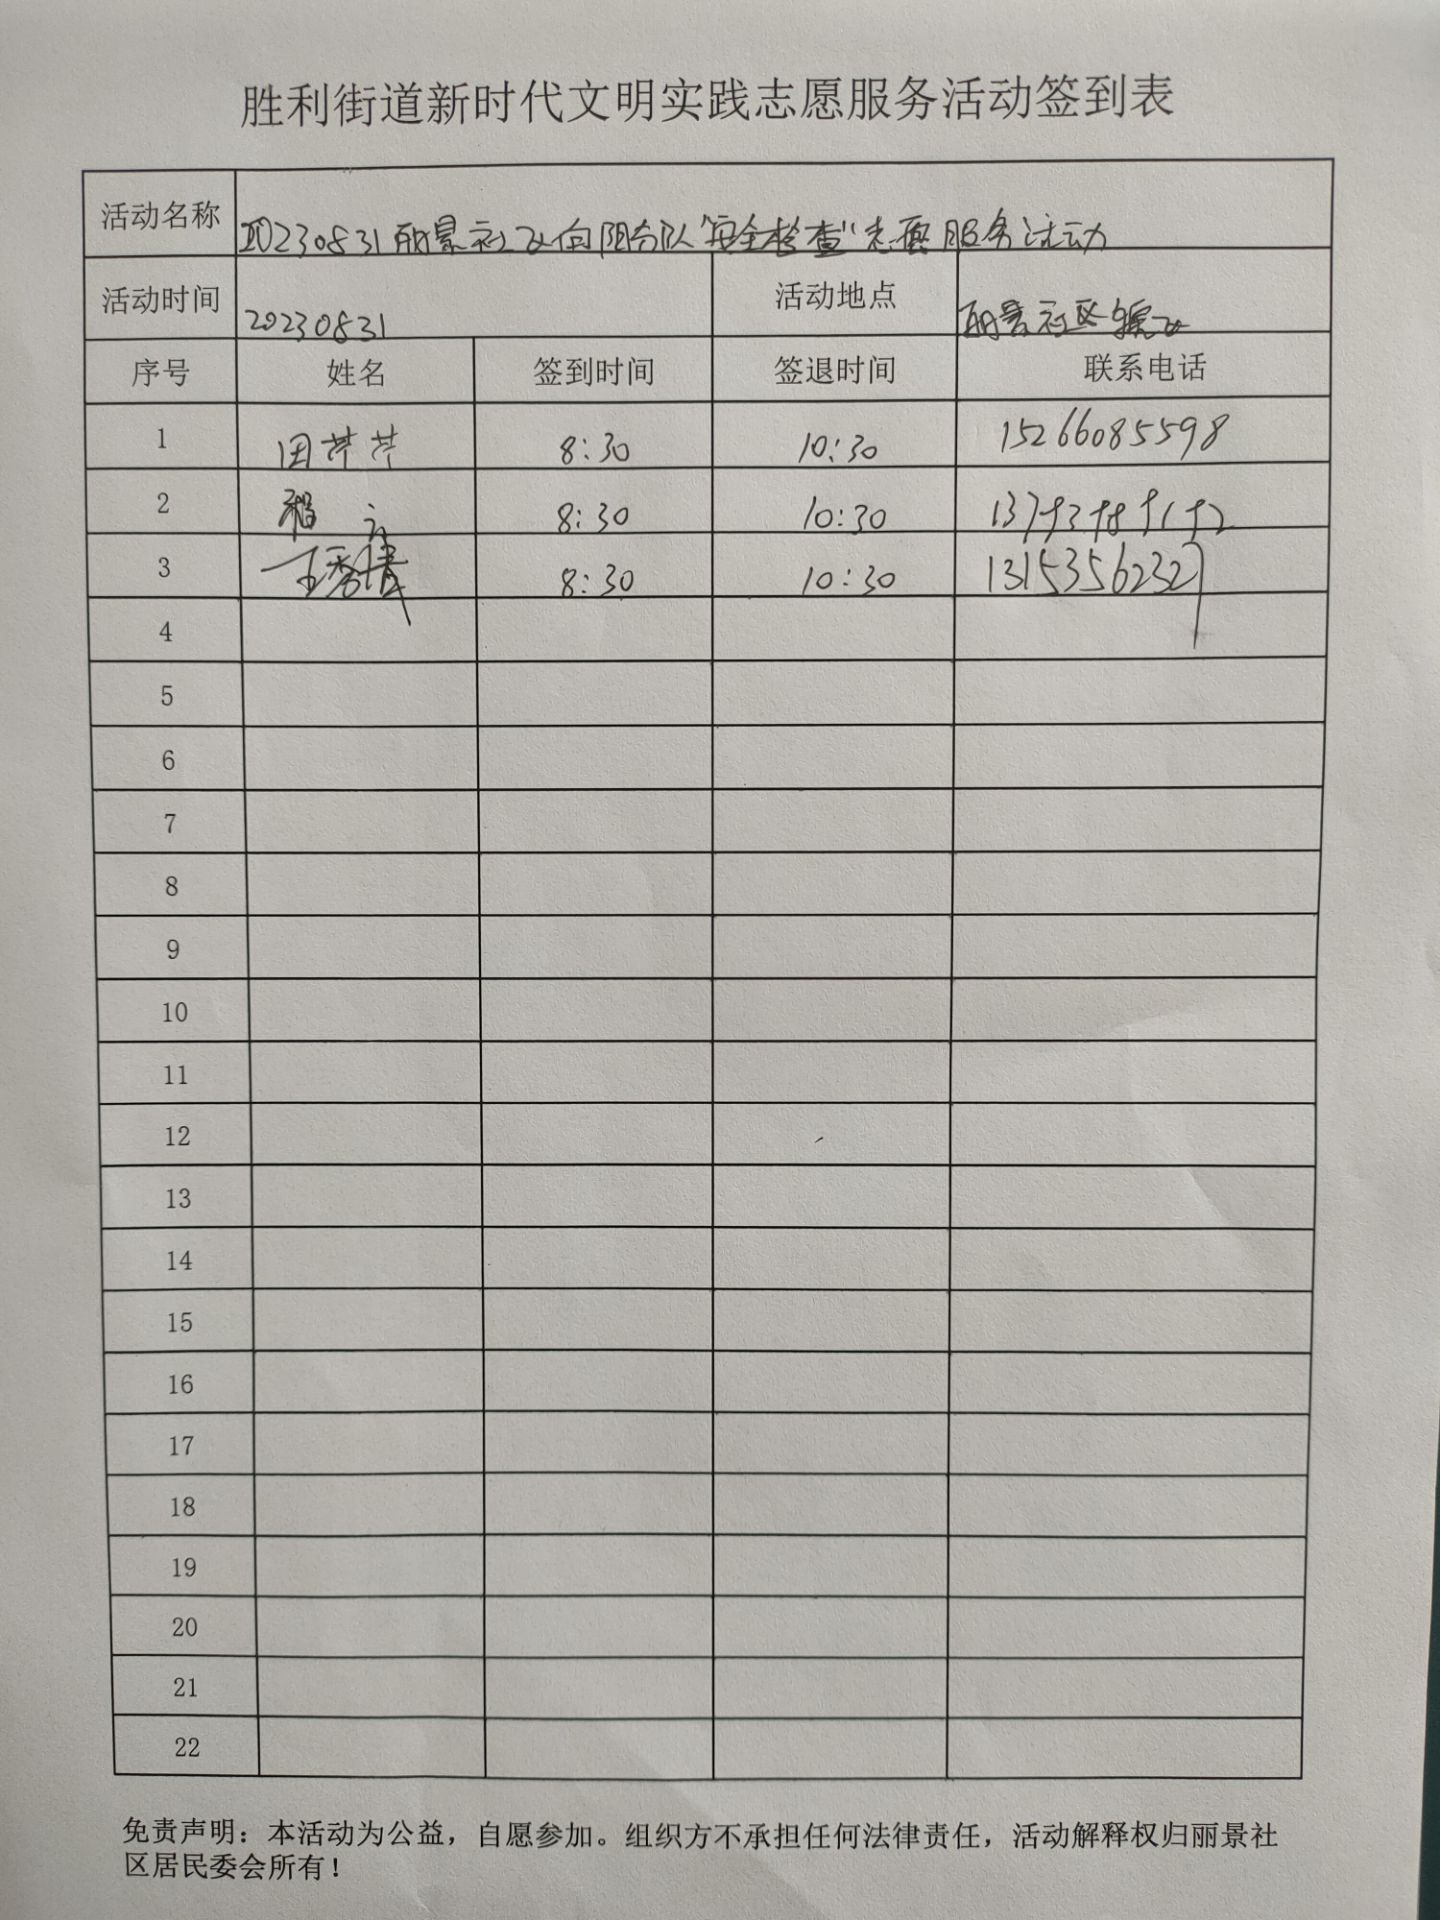 胜利街道新时代文明实践志愿服务活动签到表
活动名称 20230831丽景社区向阳分队“安全检查”志愿服务活动
活动时间 20230831 活动地点 丽景社区辖区
序号 姓名 签到时间 签退时间 联系电话
1 田芹芹 8:30 10:30 15266085598
2 8:30 10:30
3 王秀清 8:30 10:30 13153562327
4
5
6
7
8
9
10
11
12
13
14
15
16
17
18
19
20
21
22
免责声明：本活动为公益，自愿参加。组织方不承担任何法律责任，活动解释权归丽景社
区居民委会所有！